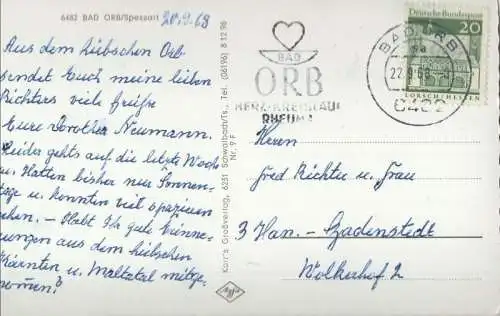 6482 BAD ORB/Spessart 20.9.68
Aus dem hübschen Orb
sendet Euch meine lieben
Richters viele Grüße
Eure Dorothea Neumann.
Leider gehts auf die letzte Woch
u. Hatten bisher nur Sonnen-
tage u. konnten viel spazieren
gehen. – Habt Ihr gute Erinne-
rungen aus dem hübschen
Kärnten u. Maltatal mitge-
nommen?
Karr's Großverlag, 6231 Schwalbach/Ts., Tel. (06196) 8 12 96
Nr. 9 F
Agfa
BAD
ORB
HERZ-KREISLAUF
RHEUMA
BAD ORB
22.9.68
6482
Deutsche Bundespost
20
LORSCH/HESSEN
Herrn
Fred Richter u. Frau
3 Han.-Badenstedt
Wolkerhof 2